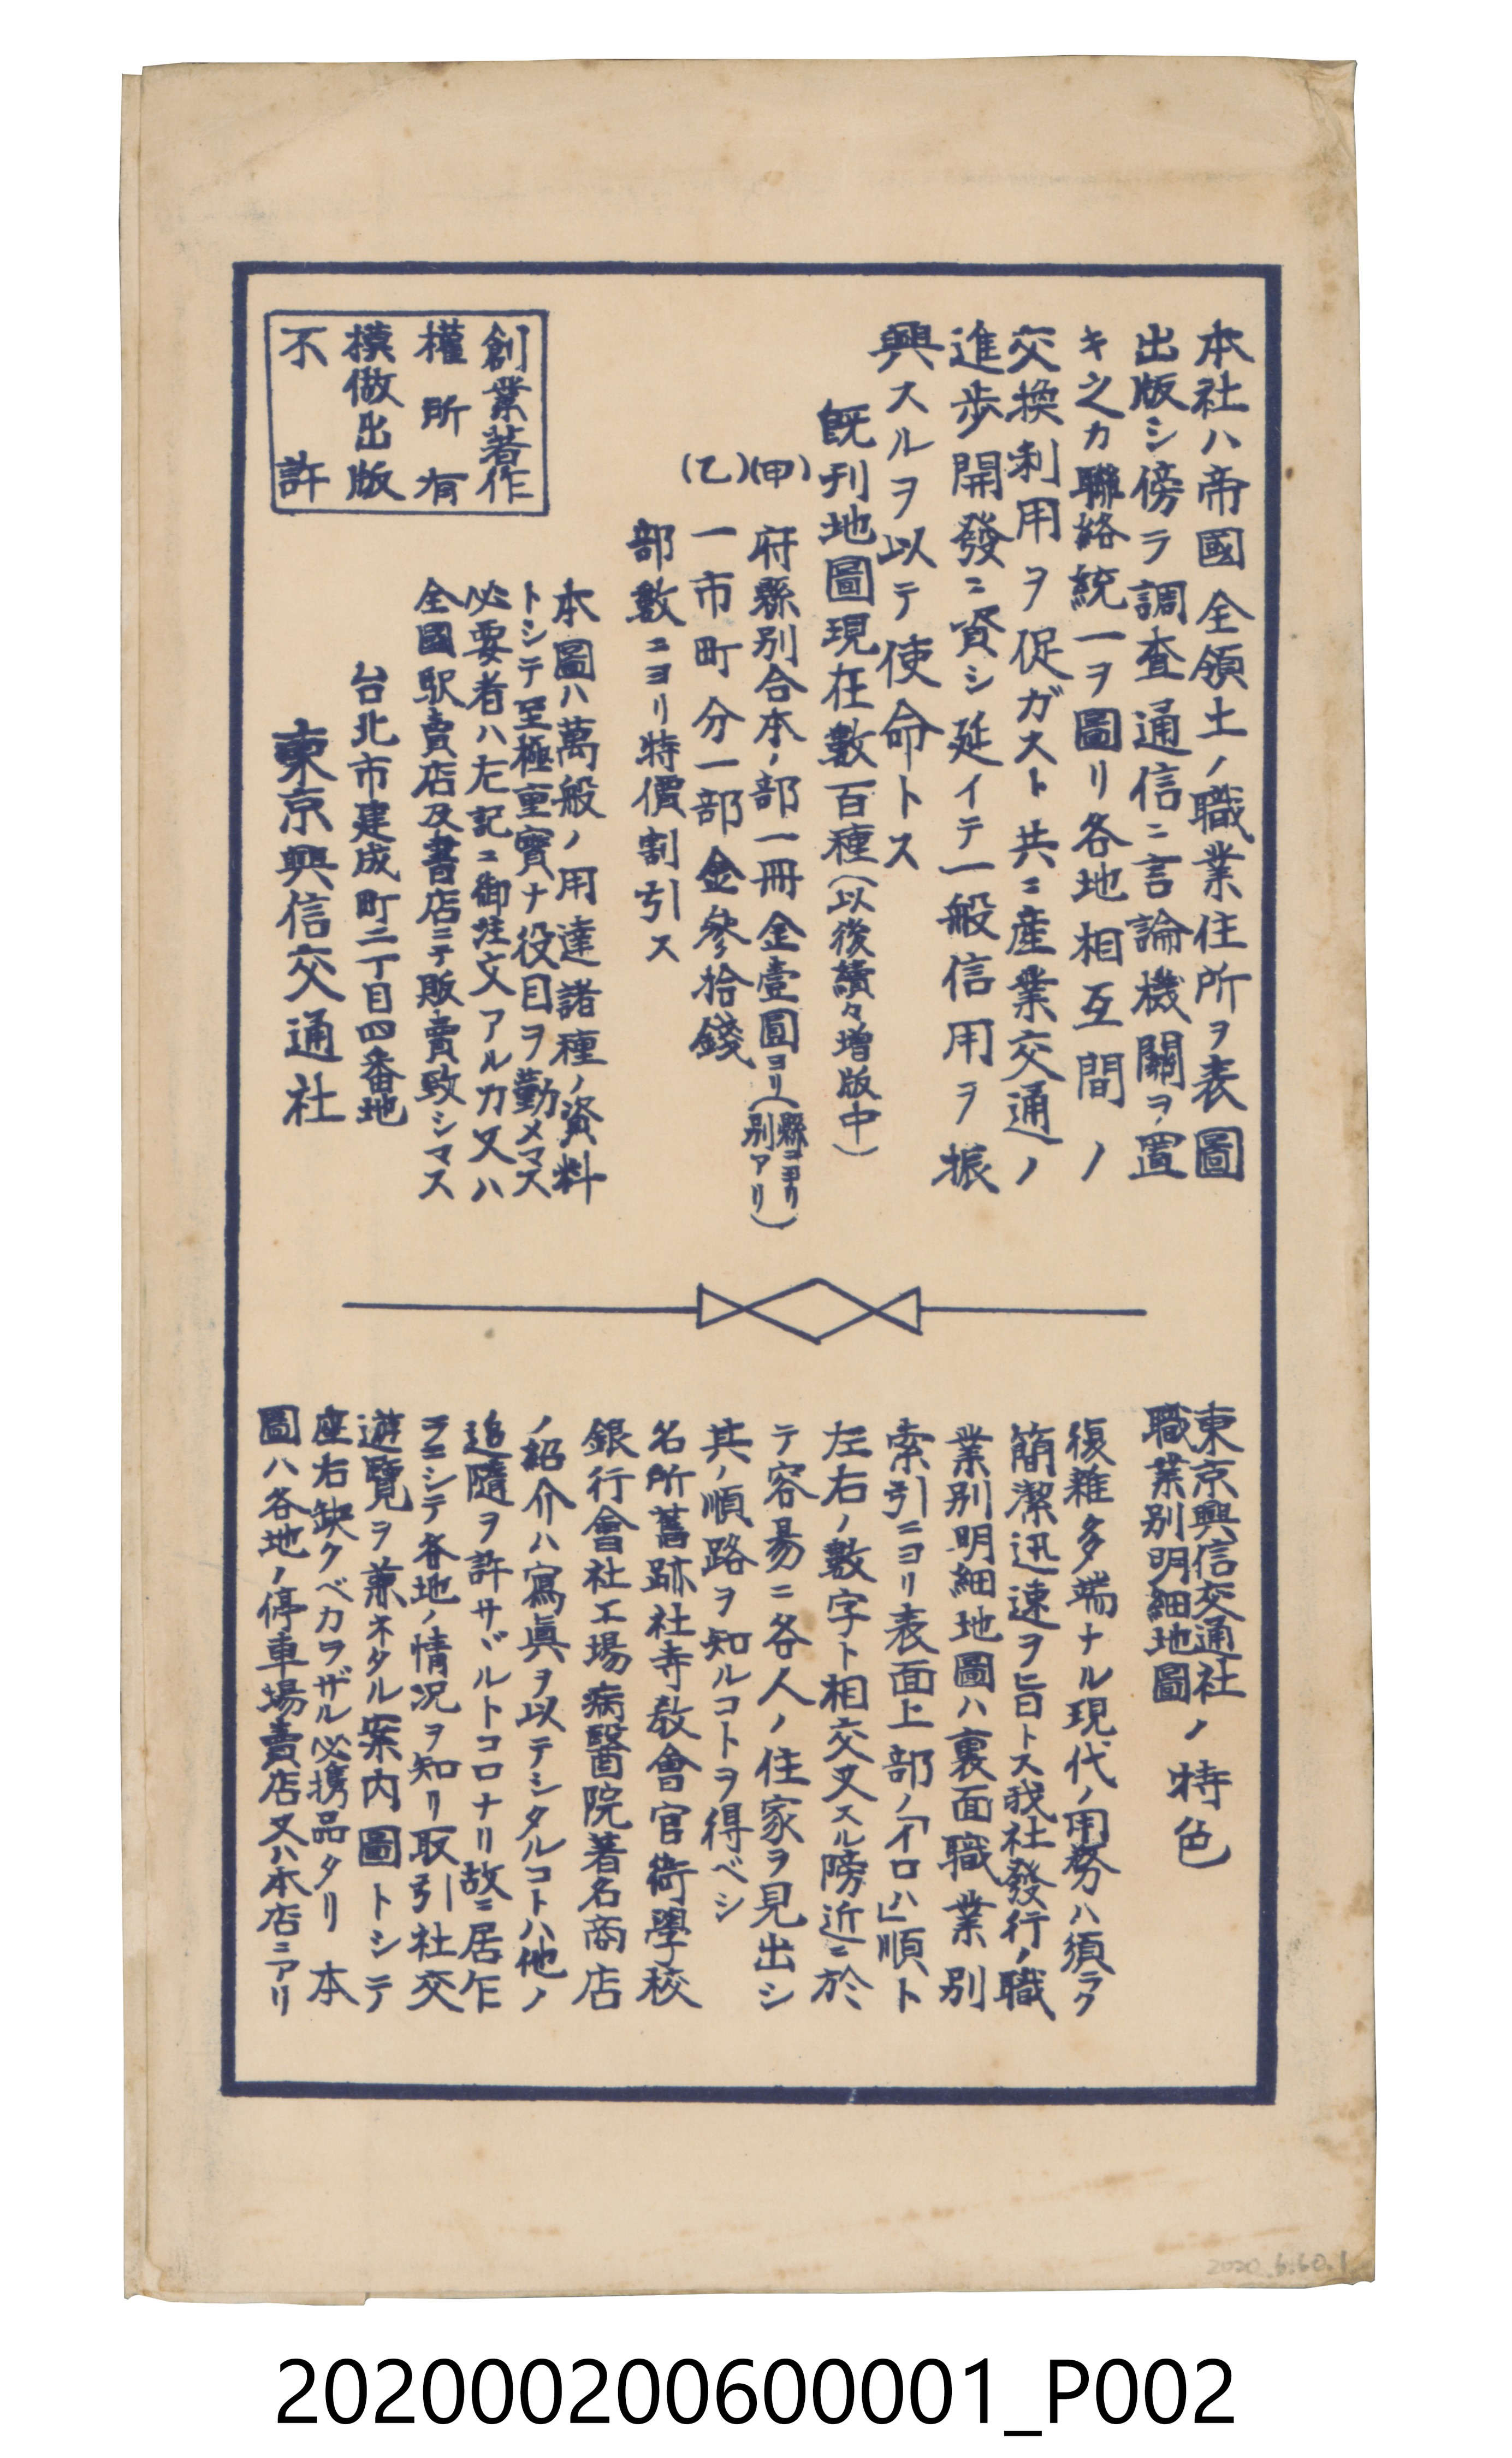 本社ハ帝國全領土ノ職業住所ヲ表圖
出版シ傍ラ調査通信ニ言論機關ヲ置
キ之カ聯絡統一ヲ圖リ各地相互間ノ
交換利用ヲ促ガスト共ニ産業交通ノ
進歩開發ニ資シ延イテ一般信用ヲ振
興スルヲ以テ使命トス
既刊地圖現在數百種(以後續々増版中)
(甲)府縣別合本ノ部一冊金壹圓ヨリ(縣ニヨリ別アリ)
(乙)一市町分一部金參拾錢
部數ニヨリ特價割引ス
本圖ハ萬般ノ用達諸種ノ資料
トシテ至極重寳ナ役目ヲ勤メマス
必要者ハ左記ニ御注文アルカ又ハ
全國駅賣店及書店ニテ販賣致シマス
台北市建成町二丁目四番地
東京興信交通社
創業著作
權所有
模倣出版
不許
東京興信交通社
職業別明細地圖ノ特色
復雜多端ナル現代ノ用務ハ須ラク
簡潔迅速ヲ旨トス我社發行ノ職
業別明細地圖ハ裏面職業別
索引ニヨリ表面上部ノ「イロハ」順ト
左右ノ數字ト相交叉スル傍近ニ於
テ容易ニ各人ノ住家ヲ見出シ
其ノ順路ヲ知ルコトヲ得ベシ
名所舊跡社寺敎會官衙學校
銀行會社工場病醫院著名商店
ノ紹介ハ寫眞ヲ以テシタルコトハ他ノ
追隨ヲ許サヾルトコロナリ故ニ居乍
ラニシテ各地ノ情況ヲ知リ取引社交
遊覽ヲ兼ネタル案内圖トシテ
座右缺クベカラザル必携品タリ 本
圖ハ各地ノ停車場賣店又ハ本店ニアリ
2020.6.60.1
202000200600001_P002